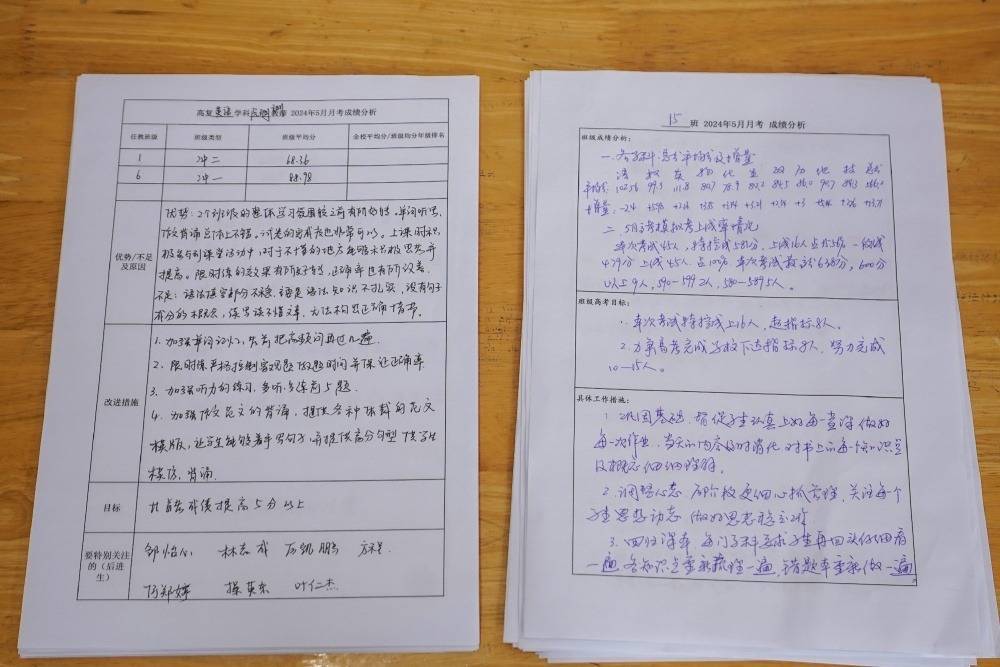 高复英语学科 2024年5月月考成绩分析
任教班级 班级类型 班级平均分 全校平均分/班级均分年级排名
1 冲二 68.36
6 冲一 88.98
优势/不足及原因
优势:2个班班的整体学习氛围较之前有所好转。单词听写、
作文背诵总体上不错。讨论的完成度也非常可以。上课时积
极参与到课堂活动中,对于不懂的地方能够积极思考并
提高。限时练的效果有所好转,正确率也有所改善。
不足:语法填空部分不稳,主要是语法知识不扎实,没有句子
成分的概念,读写读不懂文章,无法构思正确情节。
改进措施
1. 加强单词记忆,负责把高频词再过几遍。
2. 限时练严格控制客观题做题时间并保证正确率
3. 加强听力的练习,多听多练前5题。
4. 加强作文范文的背诵,提供各种体裁的范文
模版,让学生能够着手写句子,并提供高分句型供学生
模仿,背诵。
目标
比上次成绩提高5分以上
要特别关注的(后进生)
邹怡心 林志成 方凯鹏 方程
何郑婷 操英东 叶仁杰
15 班 2024年5月月考 成绩分析
班级成绩分析:
一. 各学科、总分平均分及增量
语 数 英 物 化 生 政 历 地 技 总分
平均分 102.56 99.3 111.8
增量
二. 5月高考模拟考上线率情况
本次考试45人,特控线581分,上线16人占35.5% 一段线
479分上线45人,占100% 本次考试最高分638分,600分
以上9人,590-599 2人,580-589 5人。
班级高考目标:
1. 本次考试特控线上16人,超指标8人。
2. 力争高考完成学校下达指标8人,努力完成
10-15人。
具体工作措施:
1. 巩固基础,督促学生认真上好每一堂课做好
每一次作业,当天的内容及时消化,对书上的每个知识点
及概念细细理解。
2. 调整心态 后阶段更细心抓管理,关注每个
学生思想动态 做好思想稳定工作
3. 回归课本 每门学科要求学生再回头仔细看
一遍 各知识点重新梳理一遍,错题本重新做一遍